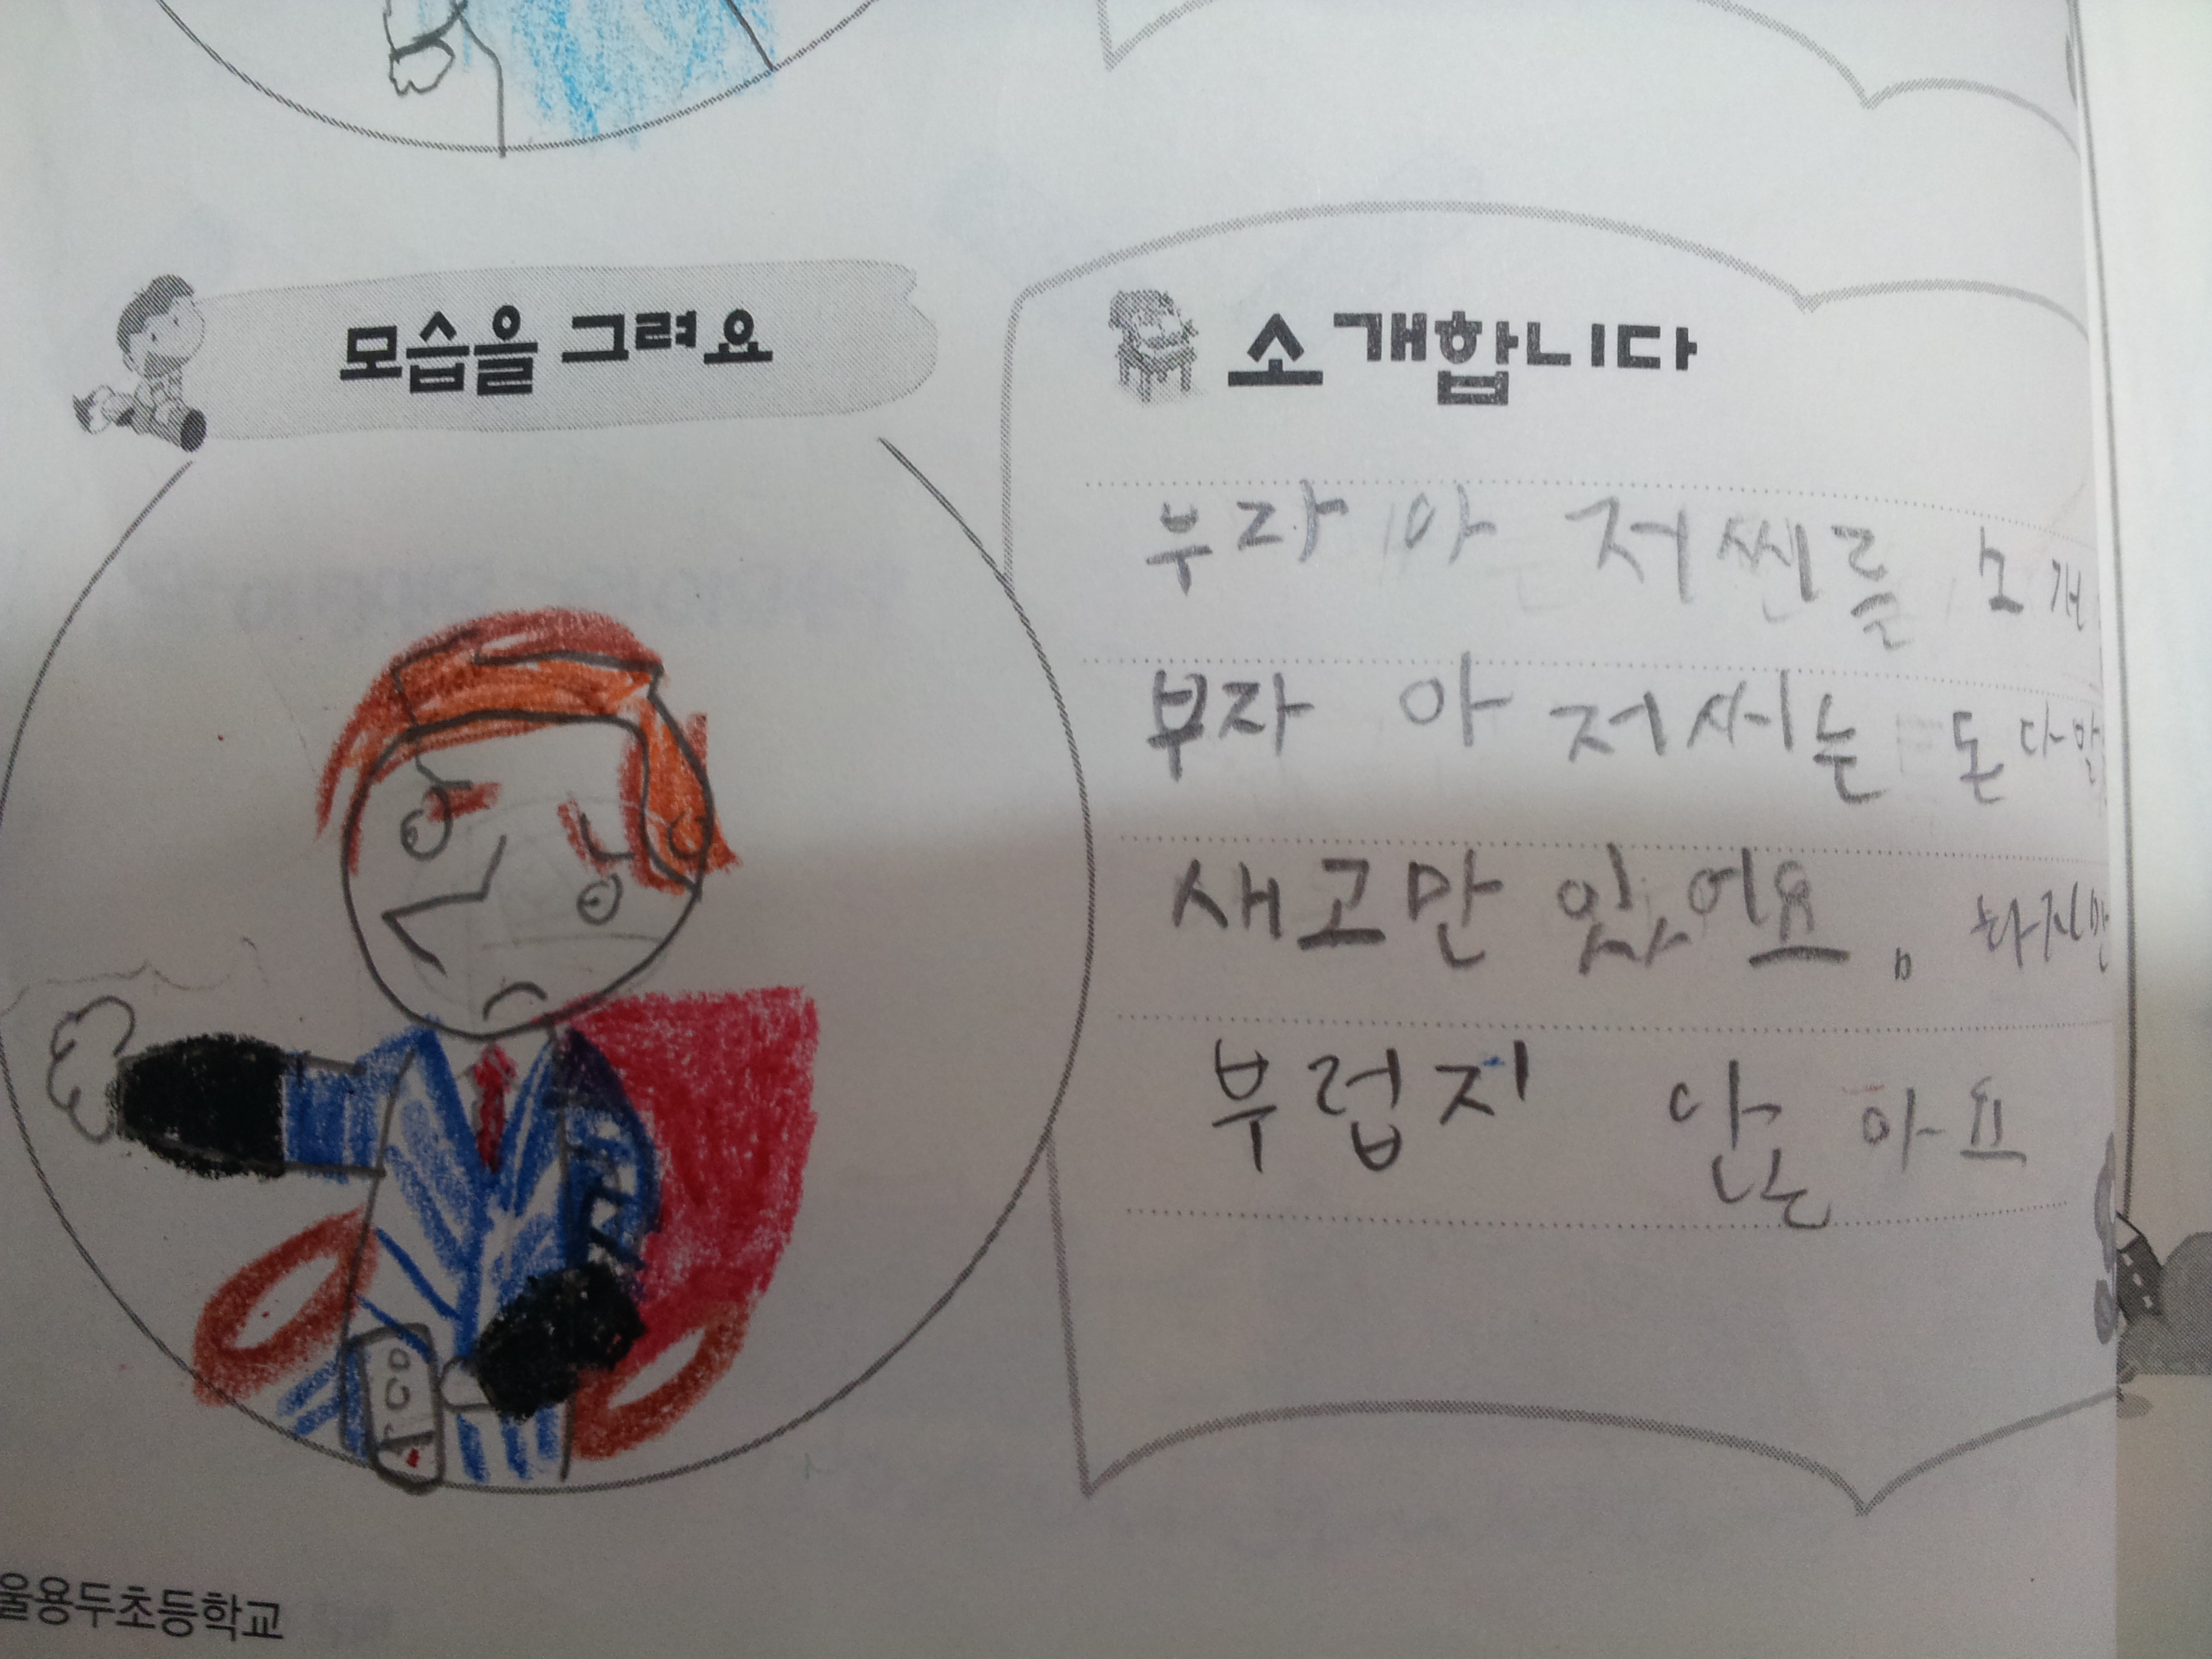 모습을 그려요
소개합니다
부자 아 저씬를 소개
부자 아 저씨는 돈다발
새고만 있어요. 하지만
부럽지 안는아요
울용두초등학교